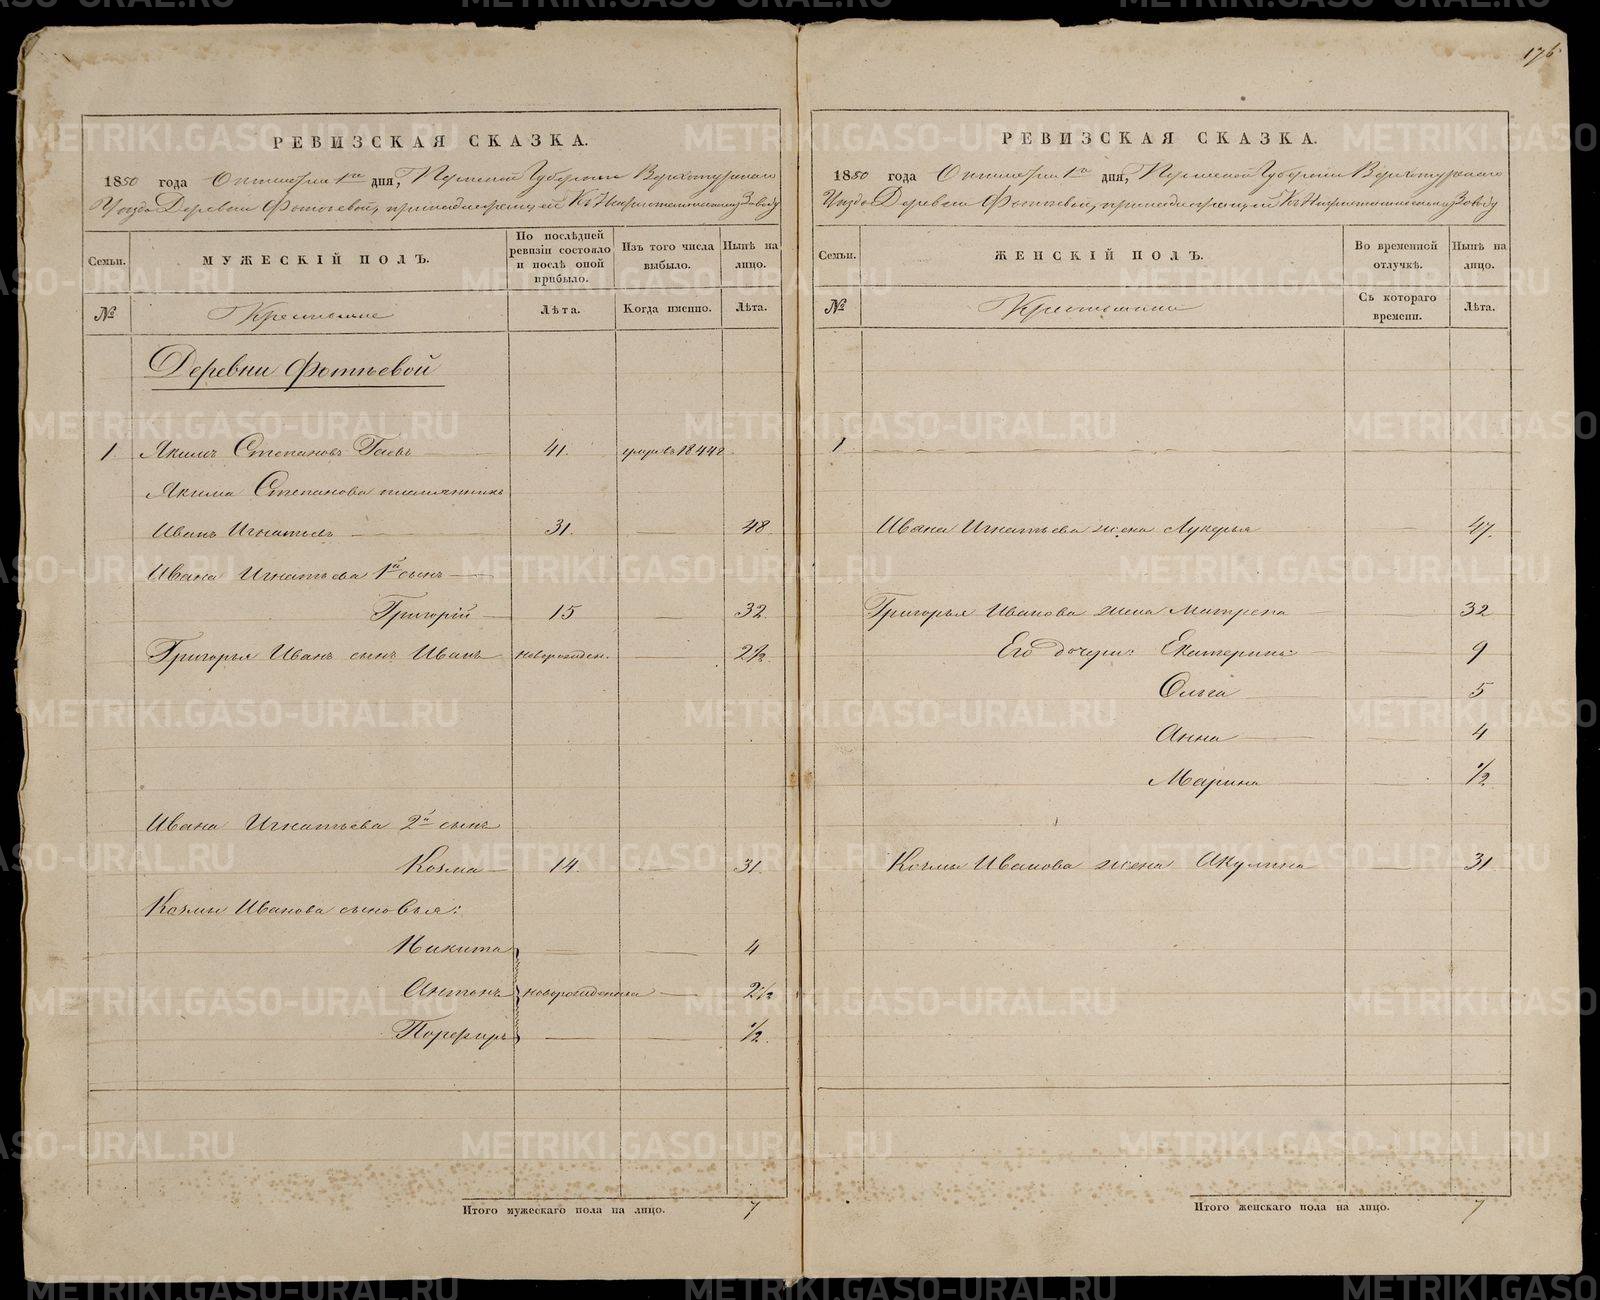 176
РЕВИЗСКАЯ СКАЗКА.
1850 года Октября 1го дня, Пермской Губернии Верхотурскаго
Уезда Деревни Фотѣевой, принадлежащей Къ Заводу
Семьи.
МУЖЕСКІЙ ПОЛЪ.
По послѣдней ревизіи состояло и послѣ оной прибыло.
Изъ того числа выбыло.
Нынѣ на лицо.
№
Крестьяне
Лѣта.
Когда именно.
Лѣта.
Деревни Фотѣевой
1 Якимъ Степановъ Гаевъ 41. 1844
Якима Степанова племянникъ
Иванъ Игнатьевъ 31. 48.
Ивана Игнатьева 1й сынъ
Григорій 15 32.
Григорья Иван сынъ Иванъ новорожден. 2 1/2.
Ивана Игнатьева 2й сынъ
Козма 14. 31.
Козмы Иванова сыновья:
Никита 4
Антонъ новорожденные 2 1/2
Порфиръ 1/2.
Итого мужескаго пола на лицо. 7
РЕВИЗСКАЯ СКАЗКА.
1850 года Октября 1го дня, Пермской Губерніи Верхотурскаго
Уезда Деревни Фотѣевой, принадлежащей Къ Заводу
Семьи.
ЖЕНСКІЙ ПОЛЪ.
Во временной отлучкѣ.
Нынѣ на лицо.
№
Крестьянки
Съ котораго времени.
Лѣта.
1
Ивана Игнатьева жена Лукерья 47.
Григорья Иванова жена Матрена 32
Его дочери: Екатерина 9
Ольга 5
Анна 4
Марина 1/2
Козмы Иванова жена Акулина 31.
Итого женскаго пола на лицо. 7
METRIKI.GASO-URAL.RU